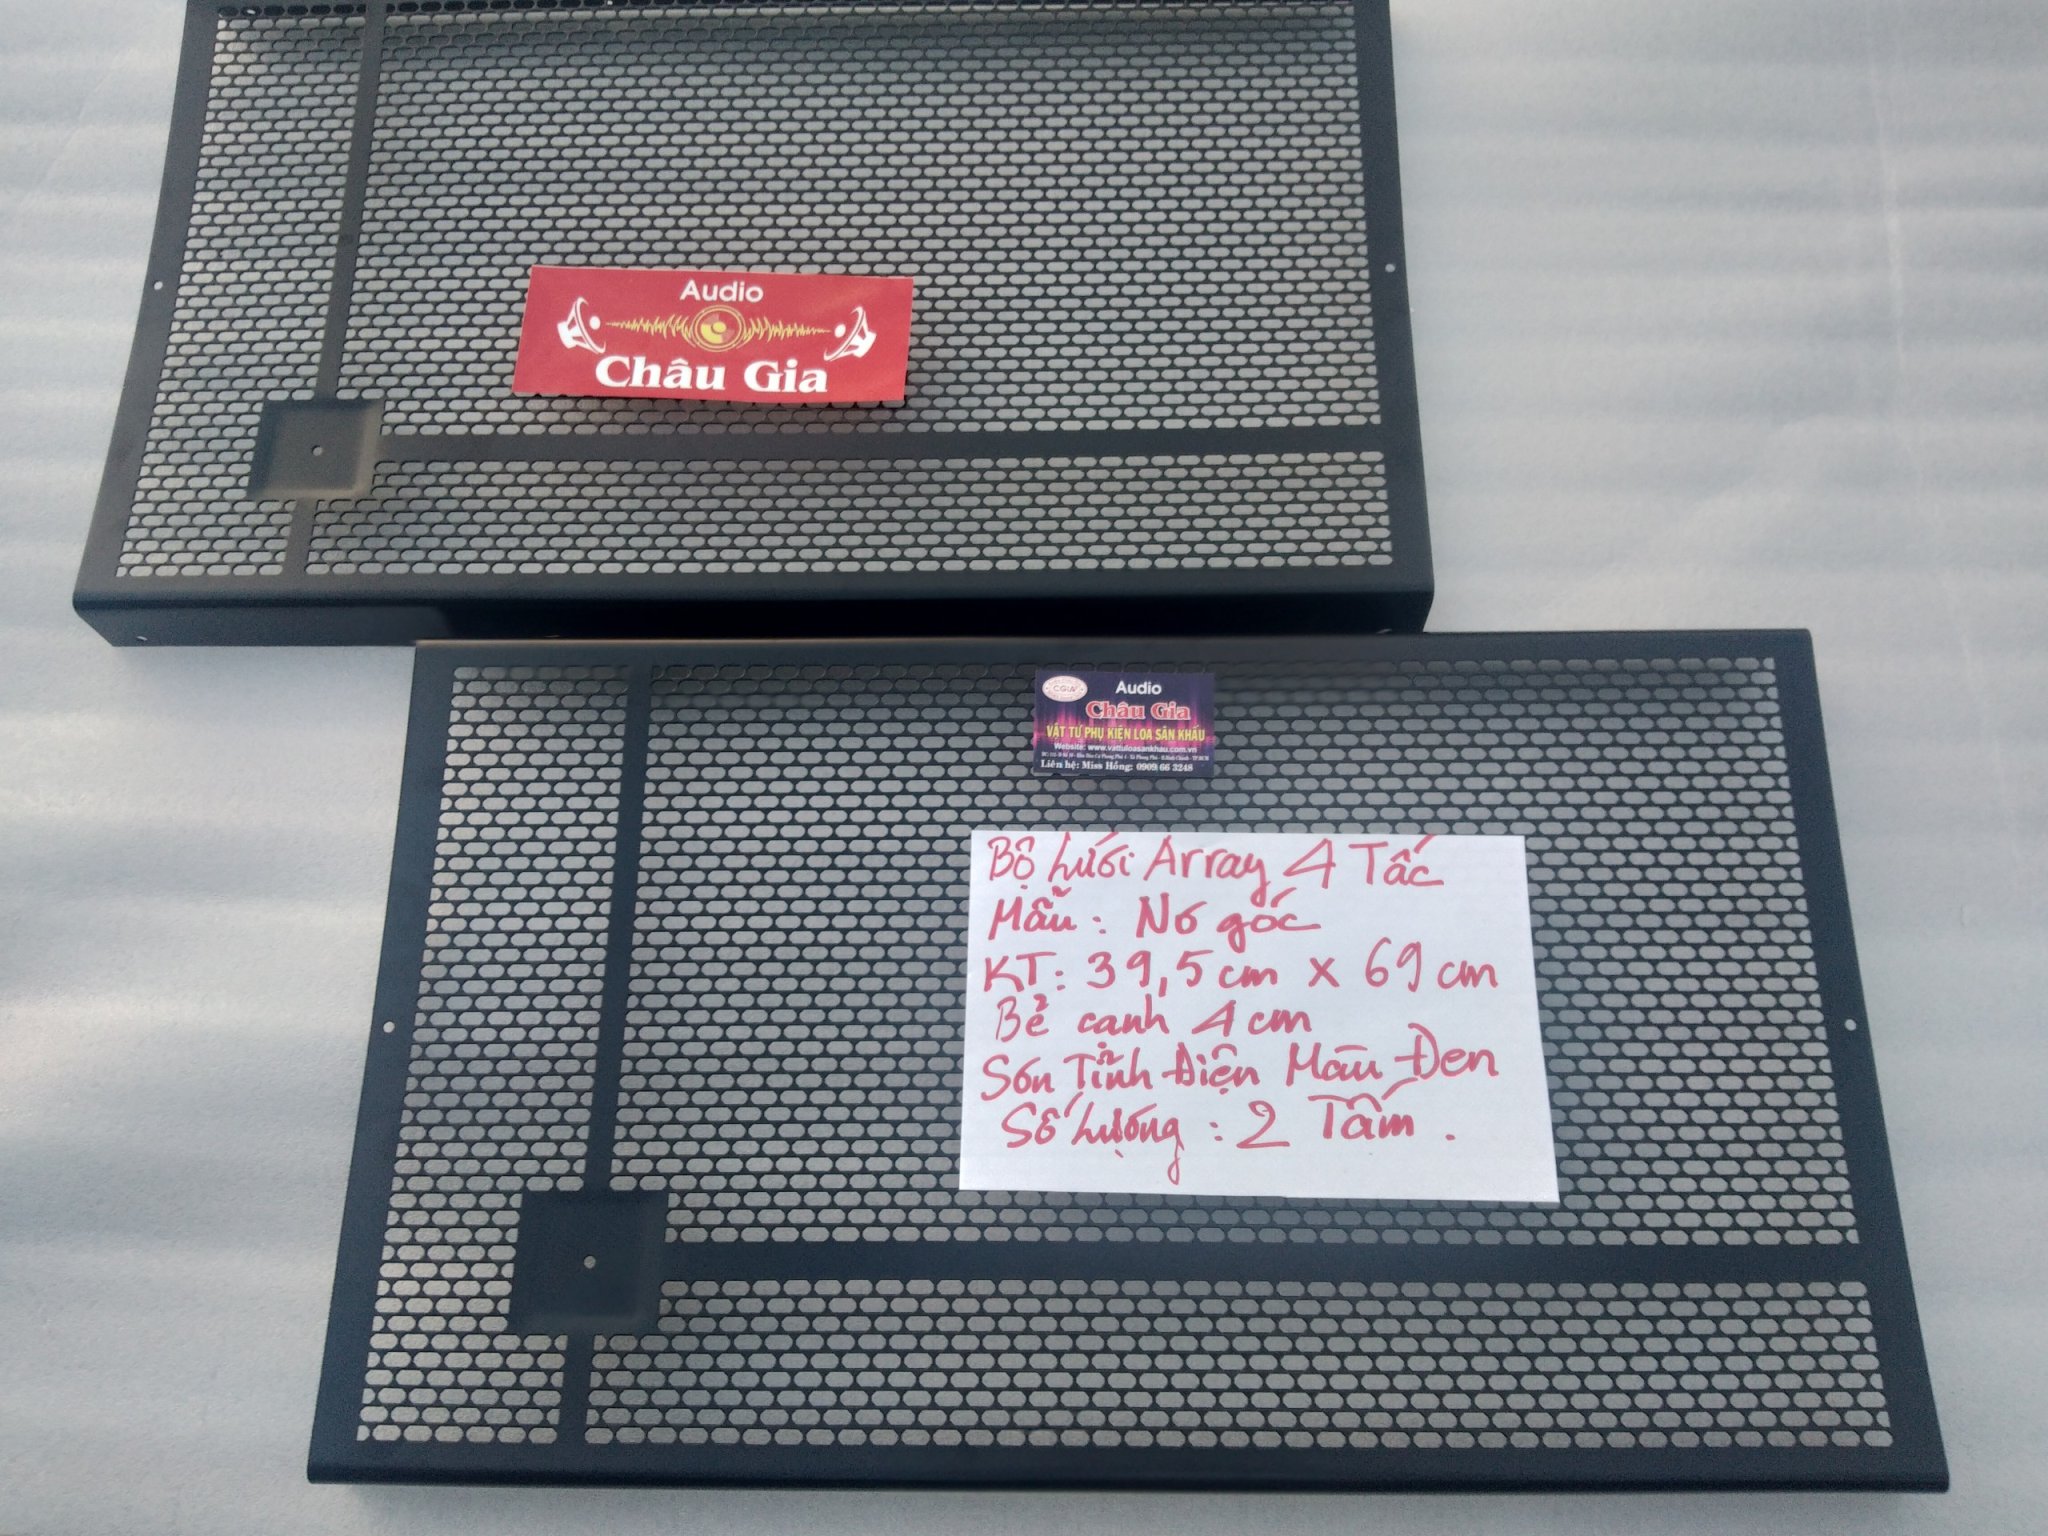 Audio
Châu Gia
CGIA
Audio
Châu Gia
VẬT TƯ PHỤ KIỆN LOA SÂN KHẤU
Website: www.vattuloasankhau.com.vn
Liên hệ: Miss Hồng: 0909 66 3248
Bộ Lưới Array 4 Tấc
Mẫu: Nơ góc
KT: 39,5 cm x 69 cm
Bẻ cạnh 4 cm
Sơn Tĩnh Điện Màu Đen
Số Lượng: 2 Tấm.